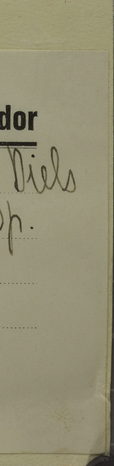 dor
Diels
sp.